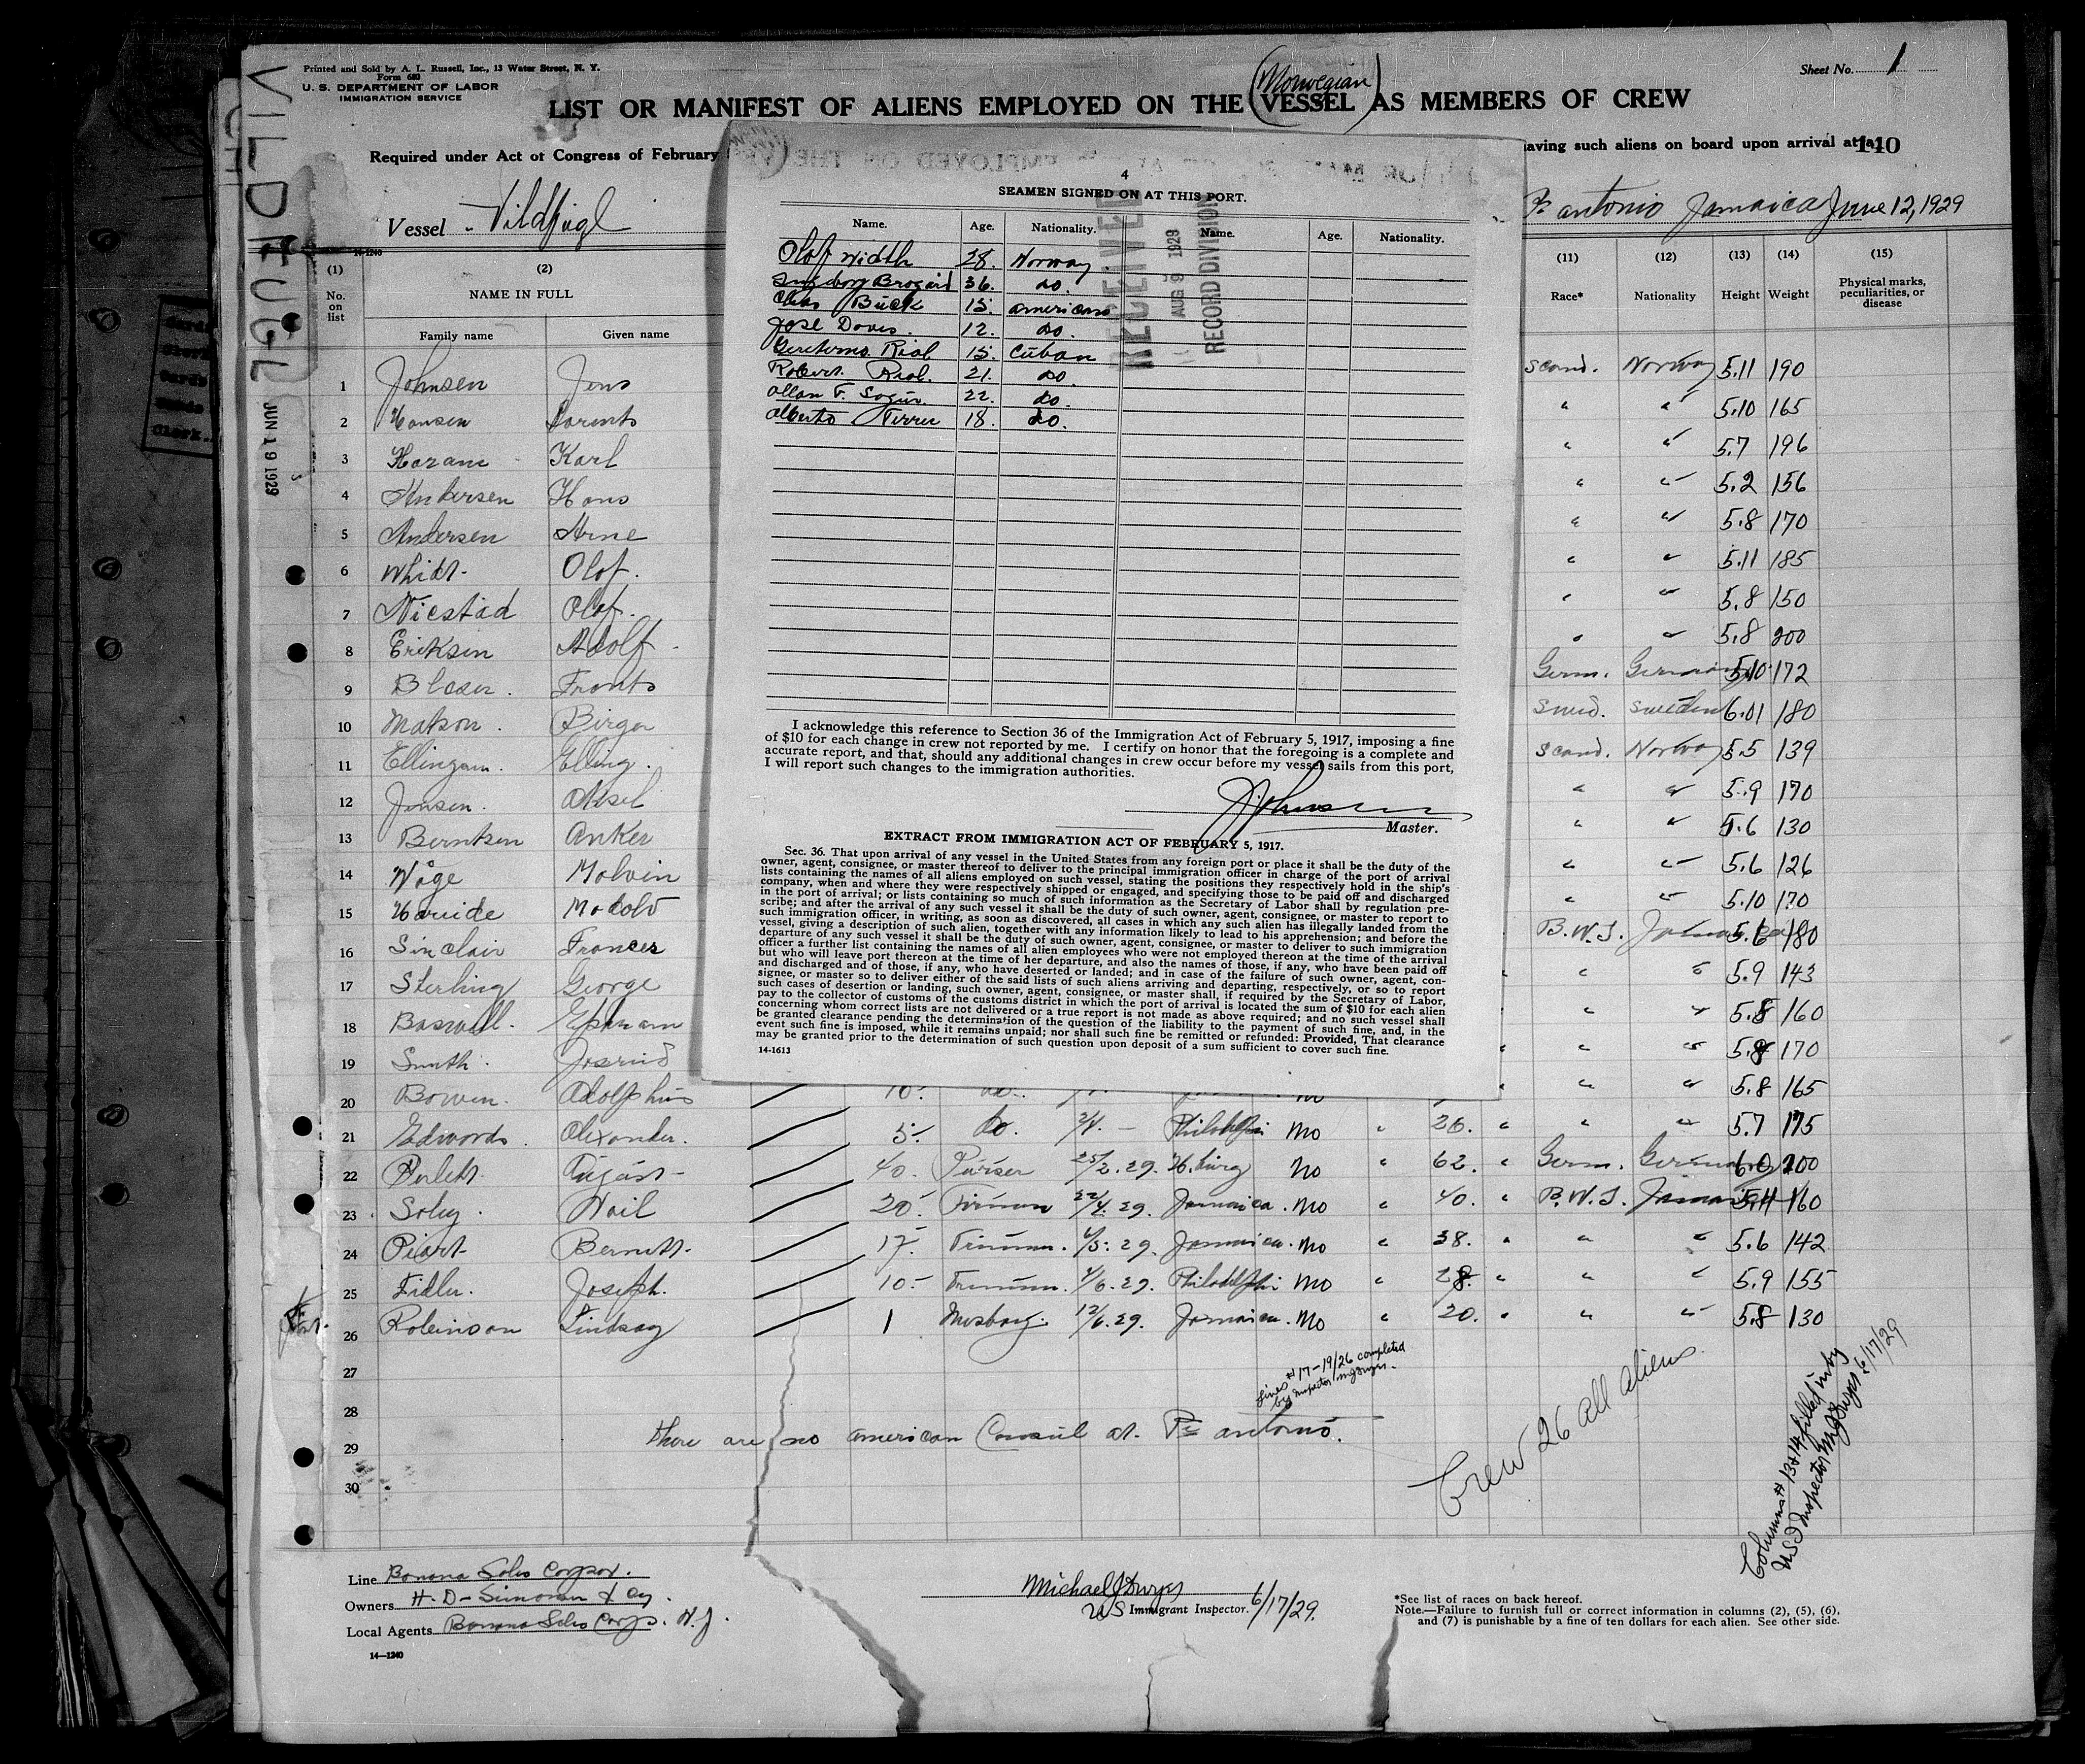 Printed and Sold by A. L. Russell, Inc., 13 Water Street, N. Y.
Form 680
U. S. DEPARTMENT OF LABOR
IMMIGRATION SERVICE
Sheet No. 1
(Norwegian)
LIST OR MANIFEST OF ALIENS EMPLOYED ON THE VESSEL AS MEMBERS OF CREW
Required under Act of Congress of February
aving such aliens on board upon arrival at a
110
VILDFUGL
JUN 19 1929
Vessel Vildfugl
Pt antonio Jamaica June 12, 1929
14-1240
(1) (2) (11) (12) (13) (14) (15)
No. on list NAME IN FULL Race* Nationality Height Weight Physical marks, peculiarities, or disease
Family name Given name
1 Johnsen Jens Scand. Norway 5.11 190
2 Hansen " " 5.10 165
3 Karl " " 5.7 196
4 Andersen Hans " " 5.2 156
5 Andersen Arne " " 5.8 170
6 Olof. " " 5.11 185
7 Niestad Olof. " " 5.8 150
8 Eriksen Adolf " " 5.8 200
9 Blaser. Frants Germ. Germany 5.10 172
10 Birger Swed. Sweden 6.01 180
11 Elling. Scand. Norway 5.5 139
12 Jensen. Aksel " " 5.9 170
13 Berntsen Anker " " 5.6 130
14 Wåge Molvin " " 5.6 126
15 " " 5.10 170
16 Sinclair Frances B.W.I. Jamaica 5.6 180
17 Sterling George " " 5.9 143
18 " " 5.8 160
19 Smith. " " 5.8 170
20 Bowen. Adolphus 10. do. no " " 5.8 165
21 Edwards. Alexander. 5. do. Philadelphi no " 26. " " " 5.7 175
22 August 40. Purser 25/2.29. H.burg no " 62. " Germ. Germany 6.0 200
23 Soley. Nail 20. Fireman 22/4.29. Jamaica. no " 40. " B.W.I. Jamaica 5.11 160
24 17. 29. Jamaica. no " 38. " " " 5.6 142
25 Fidler. Joseph. 10. 4/6.29. Philadelphi no " 28. " " " 5.9 155
26 Robinson Lindsay 1 Messboy. 12/6.29. Jamaica. no " 20. " " " 5.8 130
27
28
29
30
Lines #17-19/26 completed
by Inspector MJDwyer.
There are no american Consul at Pt antonio.
Crew 26 all aliens
Columns #13+14 filled in by
US I Inspector MJDwyer 6/17/29
Line
Owners H. D.
Local Agents
14—1240
Michael J Dwyer
US Immigrant Inspector. 6/17/29.
*See list of races on back hereof.
Note.—Failure to furnish full or correct information in columns (2), (5), (6),
and (7) is punishable by a fine of ten dollars for each alien. See other side.
4
SEAMEN SIGNED ON AT THIS PORT.
RECEIVED
AUG 9 1929
RECORD DIVISION
Name. Age. Nationality. Name. Age. Nationality.
Olof Width 28. Norway
Brogard 36. do.
Chas Buck 15. americans
Jose Davis. 12. do.
Riol 15. Cuban
Robert Riol. 21. do.
Allan F. 22. do.
Alberto 18. do.
I acknowledge this reference to Section 36 of the Immigration Act of February 5, 1917, imposing a fine
of $10 for each change in crew not reported by me. I certify on honor that the foregoing is a complete and
accurate report, and that, should any additional changes in crew occur before my vessel sails from this port,
I will report such changes to the immigration authorities.
JJohnsen
Master.
EXTRACT FROM IMMIGRATION ACT OF FEBRUARY 5, 1917.
Sec. 36. That upon arrival of any vessel in the United States from any foreign port or place it shall be the duty of the
owner, agent, consignee, or master thereof to deliver to the principal immigration officer in charge of the port of arrival
lists containing the names of all aliens employed on such vessel, stating the positions they respectively hold in the ship's
company, when and where they were respectively shipped or engaged, and specifying those to be paid off and discharged
in the port of arrival; or lists containing so much of such information as the Secretary of Labor shall by regulation pre-
scribe; and after the arrival of any such vessel it shall be the duty of such owner, agent, consignee, or master to report to
such immigration officer, in writing, as soon as discovered, all cases in which any such alien has illegally landed from the
vessel, giving a description of such alien, together with any information likely to lead to his apprehension; and before the
departure of any such vessel it shall be the duty of such owner, agent, consignee, or master to deliver to such immigration
officer a further list containing the names of all alien employees who were not employed thereon at the time of the arrival
but who will leave port thereon at the time of her departure, and also the names of those, if any, who have been paid off
and discharged and of those, if any, who have deserted or landed; and in case of the failure of such owner, agent, con-
signee, or master so to deliver either of the said lists of such aliens arriving and departing, respectively, or so to report
such cases of desertion or landing, such owner, agent, consignee, or master shall, if required by the Secretary of Labor,
pay to the collector of customs of the customs district in which the port of arrival is located the sum of $10 for each alien
concerning whom correct lists are not delivered or a true report is not made as above required; and no such vessel shall
be granted clearance pending the determination of the question of the liability to the payment of such fine, and, in the
event such fine is imposed, while it remains unpaid; nor shall such fine be remitted or refunded: Provided, That clearance
may be granted prior to the determination of such question upon deposit of a sum sufficient to cover such fine.
14-1613